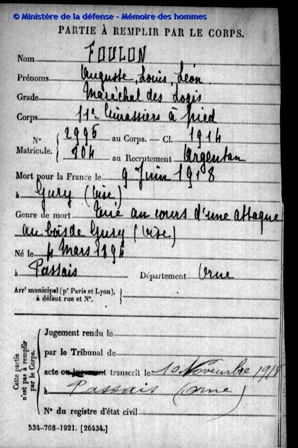 © Ministère de la défense - Mémoire des hommes
PARTIE À REMPLIR PAR LE CORPS.
Nom FOULON
Prénoms Auguste Louis Léon
Grade Maréchal des Logis
Corps 11e Cuirassiers à pied
N° 2995 au Corps. — Cl. 1914
Matricule. 804 au Recrutement Argentan
Mort pour la France le 9 Juin 1918
à Gury (Oise)
Genre de mort Tué au cours d'une attaque
au bois de Gury (Oise)
Né le 4 Mars 1894
à Passais Département Orne
Arrt municipal (pr Paris et Lyon),
à défaut rue et N°.
Cette partie n'est pas à remplir par le Corps.
Jugement rendu le
par le Tribunal de
acte ou jugement transcrit le 10 Novembre 1918
à Passais (Orne)
N° du registre d'état civil
534-708-1921. [26434.]